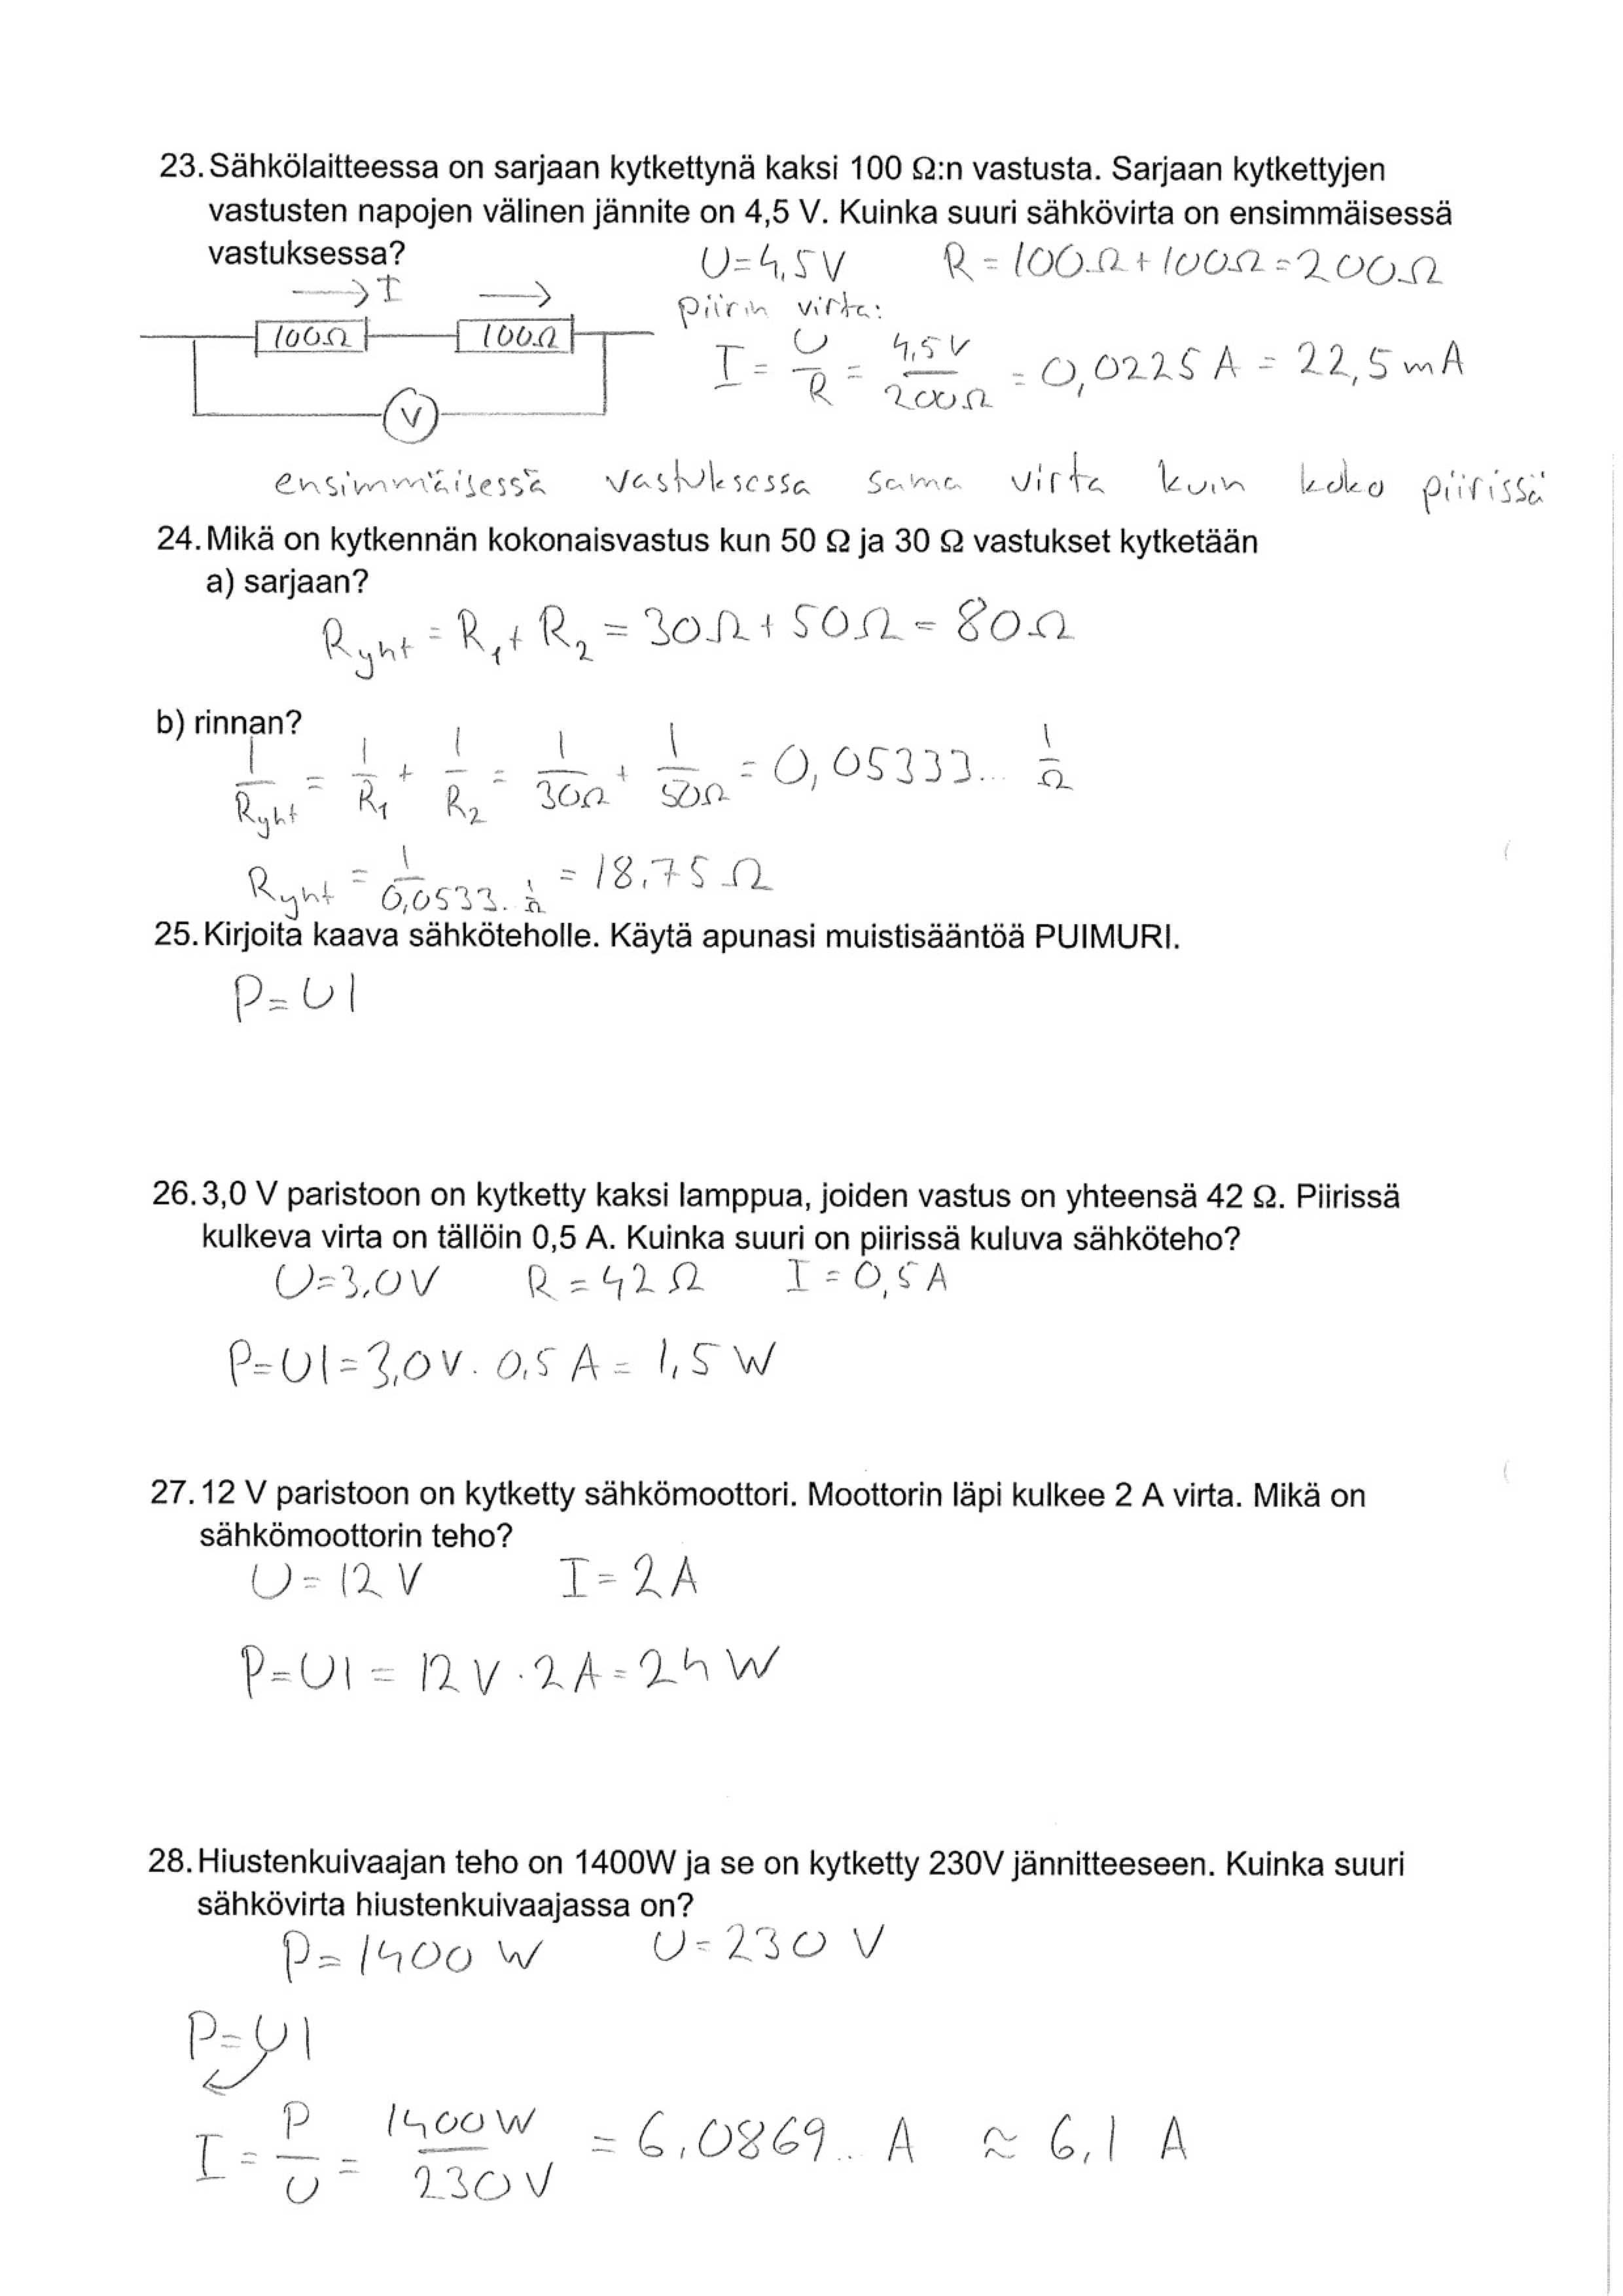 23. Sähkölaitteessa on sarjaan kytkettynä kaksi 100 Ω:n vastusta. Sarjaan kytkettyjen
vastusten napojen välinen jännite on 4,5 V. Kuinka suuri sähkövirta on ensimmäisessä
vastuksessa?
U=4,5V R=100Ω+100Ω=200Ω
→I →
piirin virta:
100Ω 100Ω
I = U/R = 4,5V/200Ω = 0,0225A = 22,5mA
V
ensimmäisessä vastuksessa sama virta kuin koko piirissä
24. Mikä on kytkennän kokonaisvastus kun 50 Ω ja 30 Ω vastukset kytketään
a) sarjaan?
Ryht = R₁+R₂ = 30Ω+50Ω = 80Ω
b) rinnan?
1/Ryht = 1/R₁ + 1/R₂ = 1/30Ω + 1/50Ω = 0,05333... 1/Ω
Ryht = 1/0,0533. 1/Ω = 18,75 Ω
25. Kirjoita kaava sähköteholle. Käytä apunasi muistisääntöä PUIMURI.
P=UI
26. 3,0 V paristoon on kytketty kaksi lamppua, joiden vastus on yhteensä 42 Ω. Piirissä
kulkeva virta on tällöin 0,5 A. Kuinka suuri on piirissä kuluva sähköteho?
U=3,0V R=42Ω I=0,5A
P=UI=3,0V·0,5A=1,5W
27. 12 V paristoon on kytketty sähkömoottori. Moottorin läpi kulkee 2 A virta. Mikä on
sähkömoottorin teho?
U=12V I=2A
P=UI=12V·2A=24W
28. Hiustenkuivaajan teho on 1400W ja se on kytketty 230V jännitteeseen. Kuinka suuri
sähkövirta hiustenkuivaajassa on?
P=1400W U=230V
P=UI
I = P/U = 1400W/230V = 6,0869.. A ≈ 6,1 A